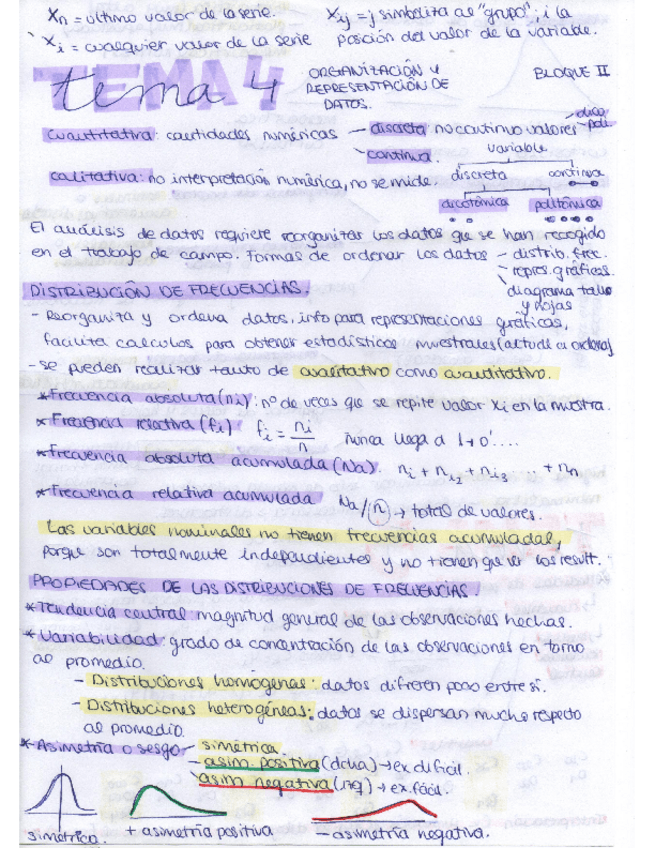 Xn = último valor de la serie.
Xij = j simboliza al "grupo"; i la
Xi = cualquier valor de la serie
posición del valor de la variable.
tema 4
TEMA 4
ORGANIZACIÓN Y
REPRESENTACIÓN DE
DATOS.
BLOQUE II
cuantitativa: cantidades numéricas — discreta: no continuo valores
dico
poli
continua.
variable
cualitativa: no interpretación numérica, no se mide.
discreta
continua
dicotómica
politómica
El análisis de datos requiere reorganizar los datos que se han recogido
en el trabajo de campo. Formas de ordenar los datos – distrib. frec.
– repres. gráficas.
diagrama tallo
y hojas
DISTRIBUCIÓN DE FRECUENCIAS.
- Reorganiza y ordena datos, info para representaciones gráficas,
facilita calculos para obtener estadísticos muestrales
- se pueden realizar tanto de cualitativo como cuantitativo.
* Frecuencia absoluta (ni): nº de veces que se repite valor xi en la muestra.
* Frecuencia relativa (fi) fi = ni/n nunca llega a 1 → 0'....
* Frecuencia absoluta acumulada (Na). ni + ni2 + ni3 ... + nn
* Frecuencia relativa acumulada Na/n → total de valores.
Las variables nominales no tienen frecuencias acumuladas,
porque son totalmente independientes y no tienen que ver los result.
PROPIEDADES DE LAS DISTRIBUCIONES DE FRECUENCIAS.
* Tendencia central magnitud general de las observaciones hechas.
* Variabilidad: grado de concentración de las observaciones en torno
al promedio.
- Distribuciones homogeneas: datos difieren poco entre sí.
- Distribuciones heterogéneas: datos se dispersan mucho respecto
al promedio.
* Asimetría o sesgo – simétrica
– asim. positiva (dcha) → ex. dificil.
asim negativa (izq) → ex. fácil.
simétrica.
+ asimetría positiva
– asimetría negativa.